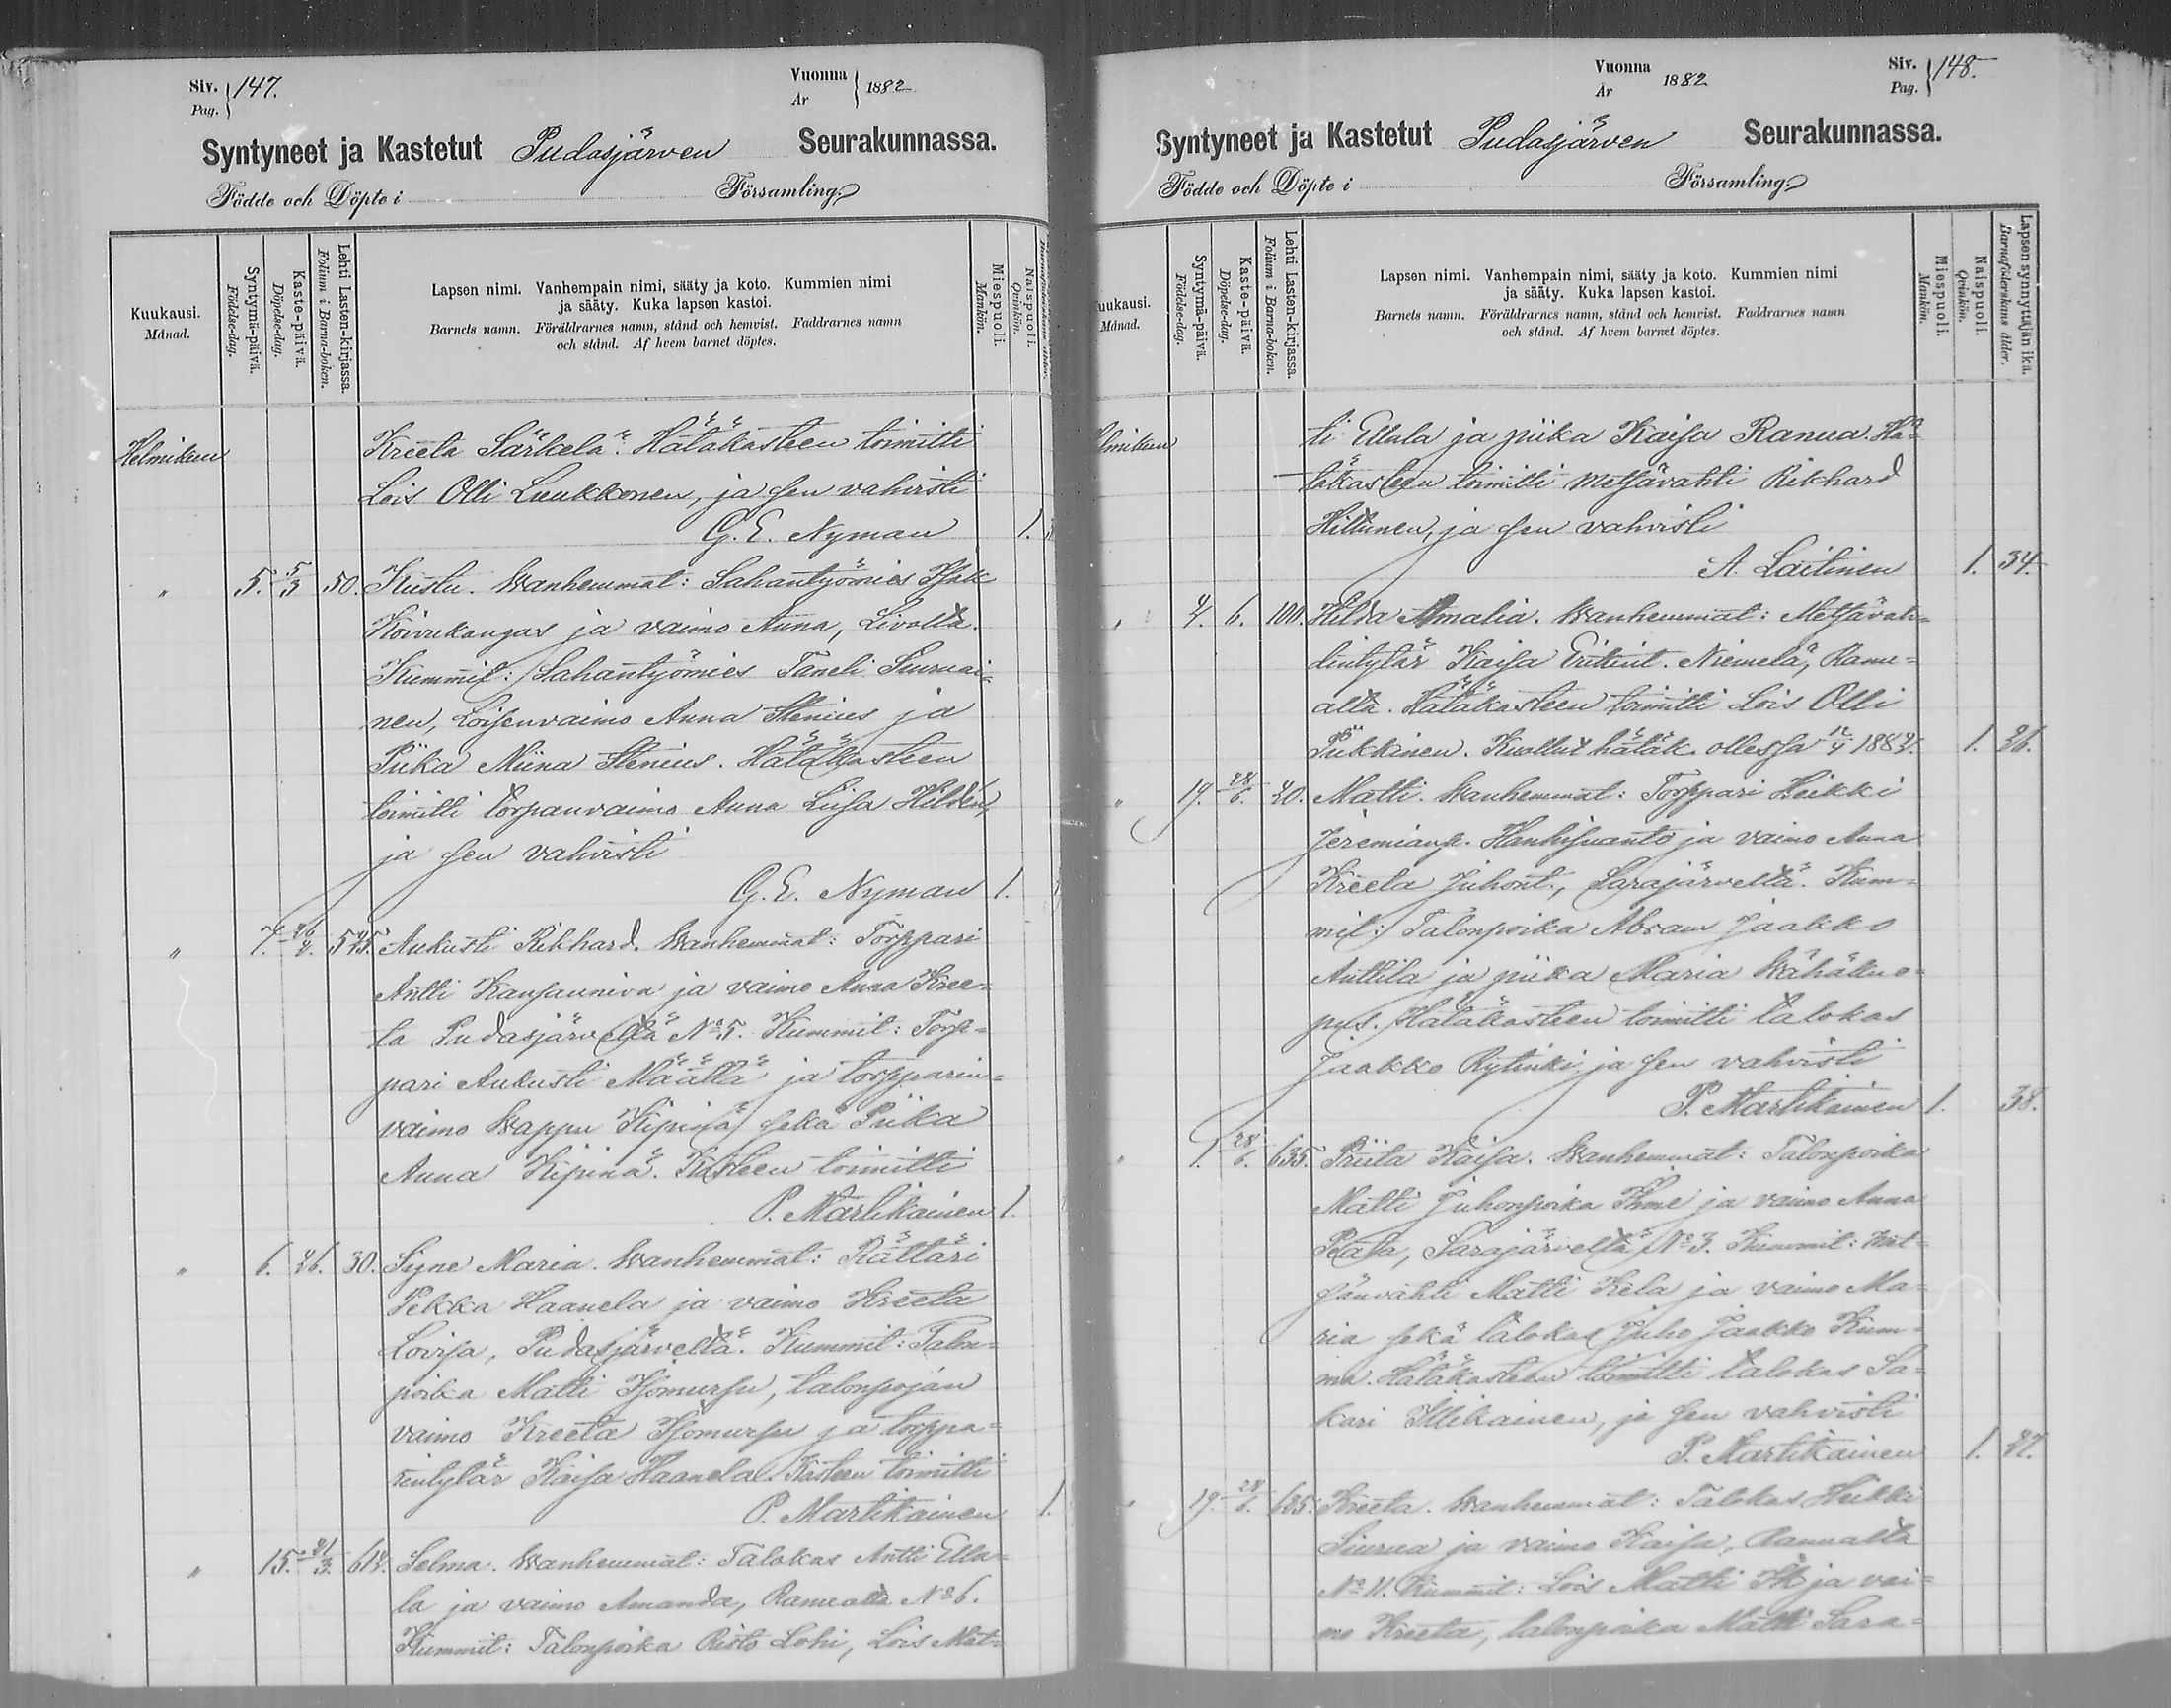 Siv. Pag. 147.
Vuonna År 1882
Syntyneet ja Kastetut Pudasjärven Seurakunnassa.
Födde och Döpte i Församling
Kuukausi. Månad.
Syntymä-päivä. Födelse-dag.
Kaste-päivä. Döpelse-dag.
Lehti Lasten-kirjassa. Folium i Barna-boken.
Lapsen nimi. Vanhempain nimi, sääty ja koto. Kummien nimi
ja sääty. Kuka lapsen kastoi.
Barnets namn. Föräldrarnes namn, stånd och hemvist. Faddrarnes namn
och stånd. Af hvem barnet döptes.
Miespuoli. Mankön.
Naispuoli. Qvinkön.
Helmikuu Kreeta Särkelä. Hätäkasteen toimitti
Lois Olli Luukkonen, ja sen vahvisti
G. E. Nyman 1.
" 5. 5/3 50. Kustu. Wanhemmat: Sahantyömies Isak
Koivukangas ja vaimo Anna, Livolta.
Kummit: Sahantyömies Taneli Siuruai=
nen, Loisenvaimo Anna Stenius ja
Piika Miina Stenius. Hätäkasteen
toimitti torpanvaimo Anna Liisa Hilden,
ja sen vahvisti
G. E. Nyman 1.
" 7. 26/2. 525. Aukusti Rikhard. Wanhemmat: Torppari
Antti Kansanniva ja vaimo Anna Kree=
ta Pudasjärveltä No 5. Kummit: Torp=
pari Aukusti Määttä ja torpparin=
vaimo Wappu Kipinä sekä Piika
Anna Kipinä. Kasteen toimitti
P. Martikainen 1.
" 6. 26. 30. Signe Maria. Wanhemmat: Rättäri
Pekka Haanela ja vaimo Kreeta
Lovisa, Pudasjärveltä. Kummit: Talon=
poika Matti Isomursu, talonpojan
vaimo Kreeta Isomursu ja torppa=
rintytär Kaisa Haanela. Kasteen toimitti
P. Martikainen 1.
" 15. 21/3. 612. Selma. Wanhemmat: Talokas Antti Ella=
la ja vaimo Amanda, Ranualta No 6.
Kummit: Talonpoika Risto Lohi, Lois Mat=
Vuonna År 1882
Siv. Pag. 148.
Syntyneet ja Kastetut Pudasjärven Seurakunnassa.
Födde och Döpte i Församling
Kuukausi. Månad.
Syntymä-päivä. Födelse-dag.
Kaste-päivä. Döpelse-dag.
Lehti Lasten-kirjassa. Folium i Barna-boken.
Lapsen nimi. Vanhempain nimi, sääty ja koto. Kummien nimi
ja sääty. Kuka lapsen kastoi.
Barnets namn. Föräldrarnes namn, stånd och hemvist. Faddrarnes namn
och stånd. Af hvem barnet döptes.
Miespuoli. Mankön.
Naispuoli. Qvinkön.
Lapsen synnyttäjän ikä. Barnaföderskans ålder.
ti Ellala ja piika Kaisa Ranua. Hä=
täkasteen toimitti metsävahti Rikhard
Hiltunen, ja sen vahvisti
A. Laitinen 1. 34.
2. 6. 100. Hilda Amalia. Wanhemmat: Metsävah=
dintytär Kaisa Niemelä, Ranu=
alta. Hätäkasteen toimitti Lois Olli
Piikkinen. Kuollut hätäk. ollessa 12/4 1882. 1. 26.
" 19. 28/6. 20. Matti. Wanhemmat: Torppari Heikki
Jeremianp. Hanhisuanto ja vaimo Anna
Kreeta Juhont, Sarajärveltä. Kum=
mit: Talonpoika Abram Jaakko
Anttila ja piika Maria Wähäkuo=
pus. Hätäkasteen toimitti talokas
Jaakko Rytinki, ja sen vahvisti
P. Martikainen 1. 38.
1. 28/6. 635. Priita Kaisa. Wanhemmat: Talonpoika
Matti Juhonpoika Ihme ja vaimo Anna
Peata, Sarajärveltä No 3. Kummit: Met=
sänvahti Matti Kela ja vaimo Ma=
ria sekä talokas Juho Jaakko Kum=
ma. Hätäkasteen toimitti talokas Sa=
kari Illikainen, ja sen vahvisti
P. Martikainen 1. 27.
19. 28/6. 685. Kreeta. Wanhemmat: Talokas Heikki
Siurua ja vaimo Kaisa, Ranualta
No 11. Kummit: Lois Matti ja vai=
mo Kreeta, talonpoika Matti Sara=